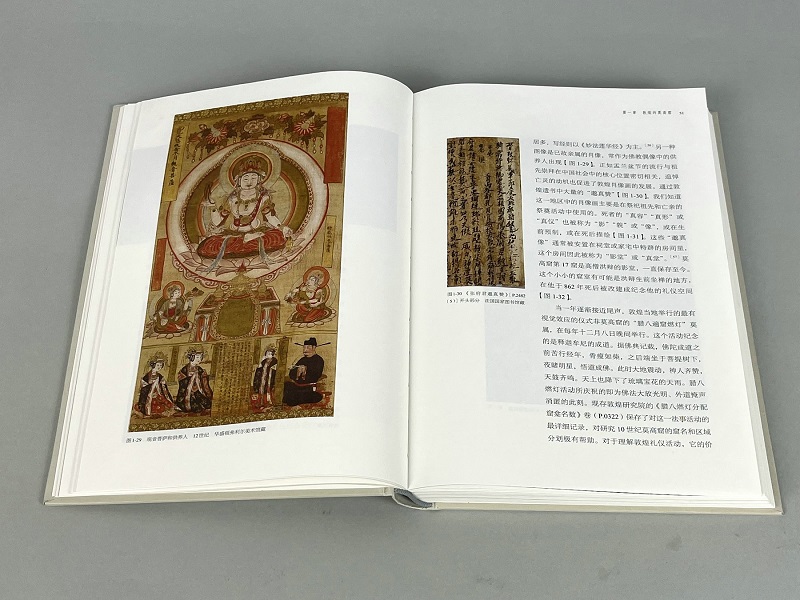 图1-29 观音菩萨和供养人 12世纪 华盛顿弗利尔美术馆藏
第一章
53
图1-30 《张府君邈真赞》（P.2482
[5]）开头部分 法国国家图书馆藏
居多，写经则以《妙法莲华经》为主。另一种
图像是已故亲属的肖像，常作为佛教偶像中的供
养人出现【图1-29】。正如盂兰盆节的流行与祖
先崇拜在中国社会中的核心位置密切相关，追悼
亡灵的动机也促进了敦煌肖像画的发展。通过敦
煌遗书中大量的“邈真赞”【图1-30】，我们知道
这一地区中的肖像画主要是在祭祀祖先和亡亲的
祭奠活动中使用的。死者的“真容”“真形”或
“真仪”也被称为“影”“貌”或“像”，或在生
前预制，或在死后描绘【图1-31】。这些“邈真
像”通常被安置在祠堂或家宅中特辟的房间里，
这个房间因此被称为“影堂”或“真堂”。莫
高窟第17窟是高僧洪辩的影堂，一直保存至今。
这个小小的窟室有可能是洪辩生前坐禅的地方，
在他于862年死后被改建成纪念他的礼仪空间
【图1-32】。
当一年逐渐接近尾声，敦煌当地举行的最有
视觉效应的仪式非莫高窟的“腊八遍窟燃灯”莫
属，在每年十二月八日晚间举行。这个活动纪念
的是释迦牟尼的成道。据佛典记载，佛陀成道之
前苦行经年，骨瘦如柴，之后端坐于菩提树下，
夜睹明星，悟道成佛。此时大地震动，神人齐赞，
天鼓齐鸣，天上也降下了琉璃宝花的天雨。腊八
燃灯活动所庆祝的即为佛法大放光明、外道掩声
消匿的此刻。现存敦煌研究院的《腊八燃灯分配
窟龛名数》卷（P.0322）保存了对这一法事活动的
最详细记录，对研究10世纪莫高窟的窟名和区域
分划极有帮助。对于理解敦煌礼仪活动，它的价